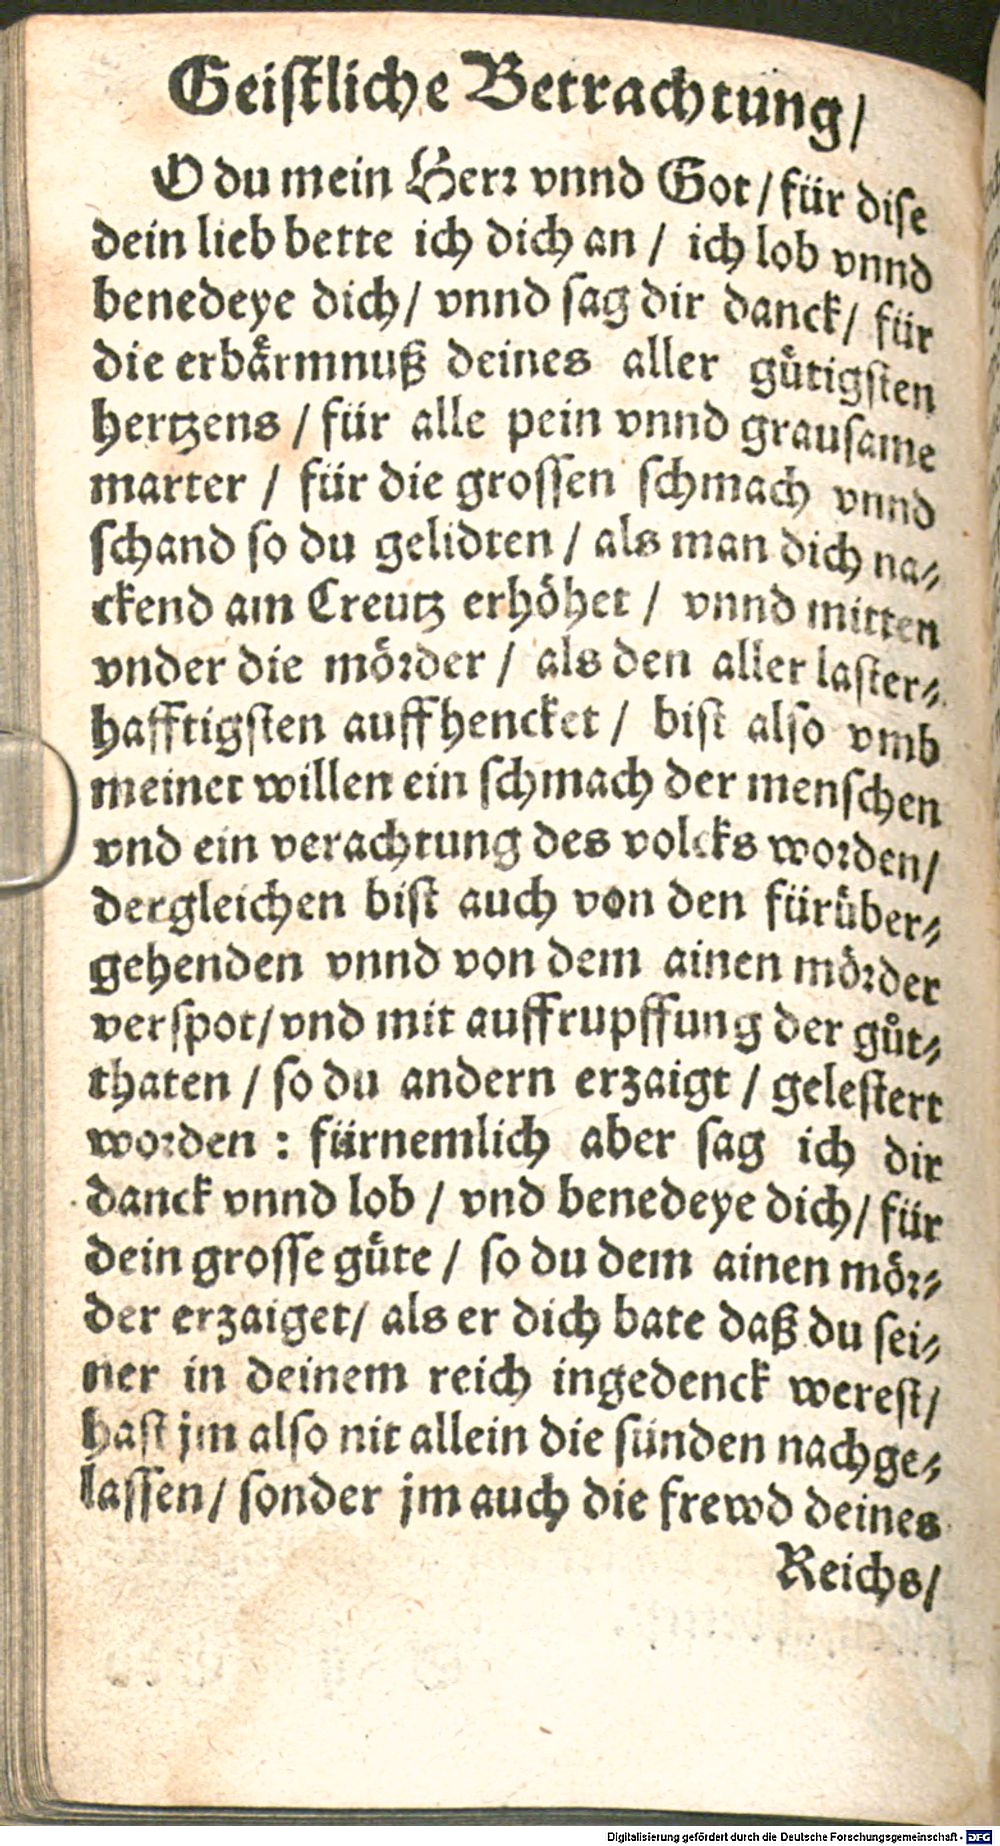 Geistliche Betrachtung/
O du mein Herr vnnd Got / für dise
dein lieb bette ich dich an / ich lob vnnd
benedeye dich / vnnd sag dir danck / für
die erbaͤrmnuß deines aller guͤtigsten
hertzens / für alle pein vnnd grausame
marter / für die grossen schmach vnnd
schand so du gelidten / als man dich na⸗
ckend am Creutz erhöhet / vnnd mitten
vnder die mörder / als den aller laster⸗
hafftigsten auffhencket / bist also vmb
meinet willen ein schmach der menschen
vnd ein verachtung des volcks worden/
dergleichen bist auch von den fürüber⸗
gehenden vnnd von dem ainen mörder
verspot/ vnd mit auffrupffung der guͤt⸗
thaten / so du andern erzaigt / gelestert
worden : fürnemlich aber sag ich dir
danck vnnd lob / vnd benedeye dich / für
dein grosse guͤte / so du dem ainen mör⸗
der erzaiget/ als er dich bate daß du sei⸗
ner in deinem reich ingedenck werest/
hast jm also nit allein die sünden nachge⸗
lassen / sonder jm auch die frewd deines
Reichs/
Digitalisierung gefördert durch die Deutsche Forschungsgemeinschaft - DFG